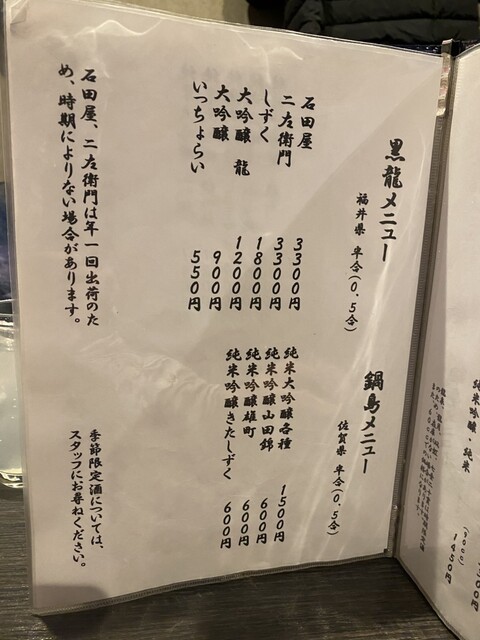 黒龍メニュー
福井県 半合(0.5合)
石田屋 3300円
二左衛門 3300円
しずく 1800円
大吟醸 龍 1200円
大吟醸 900円
いっちょらい 550円
石田屋、二左衛門は年一回出荷のた
め、時期によりない場合があります。
鍋島メニュー
佐賀県 半合(0.5合)
純米大吟醸各種 1500円
純米吟醸山田錦 600円
純米吟醸雄町 600円
純米吟醸きたしずく 600円
季節限定酒については、
スタッフにお尋ねください。
純米吟醸・純米
(90cc)
1450円